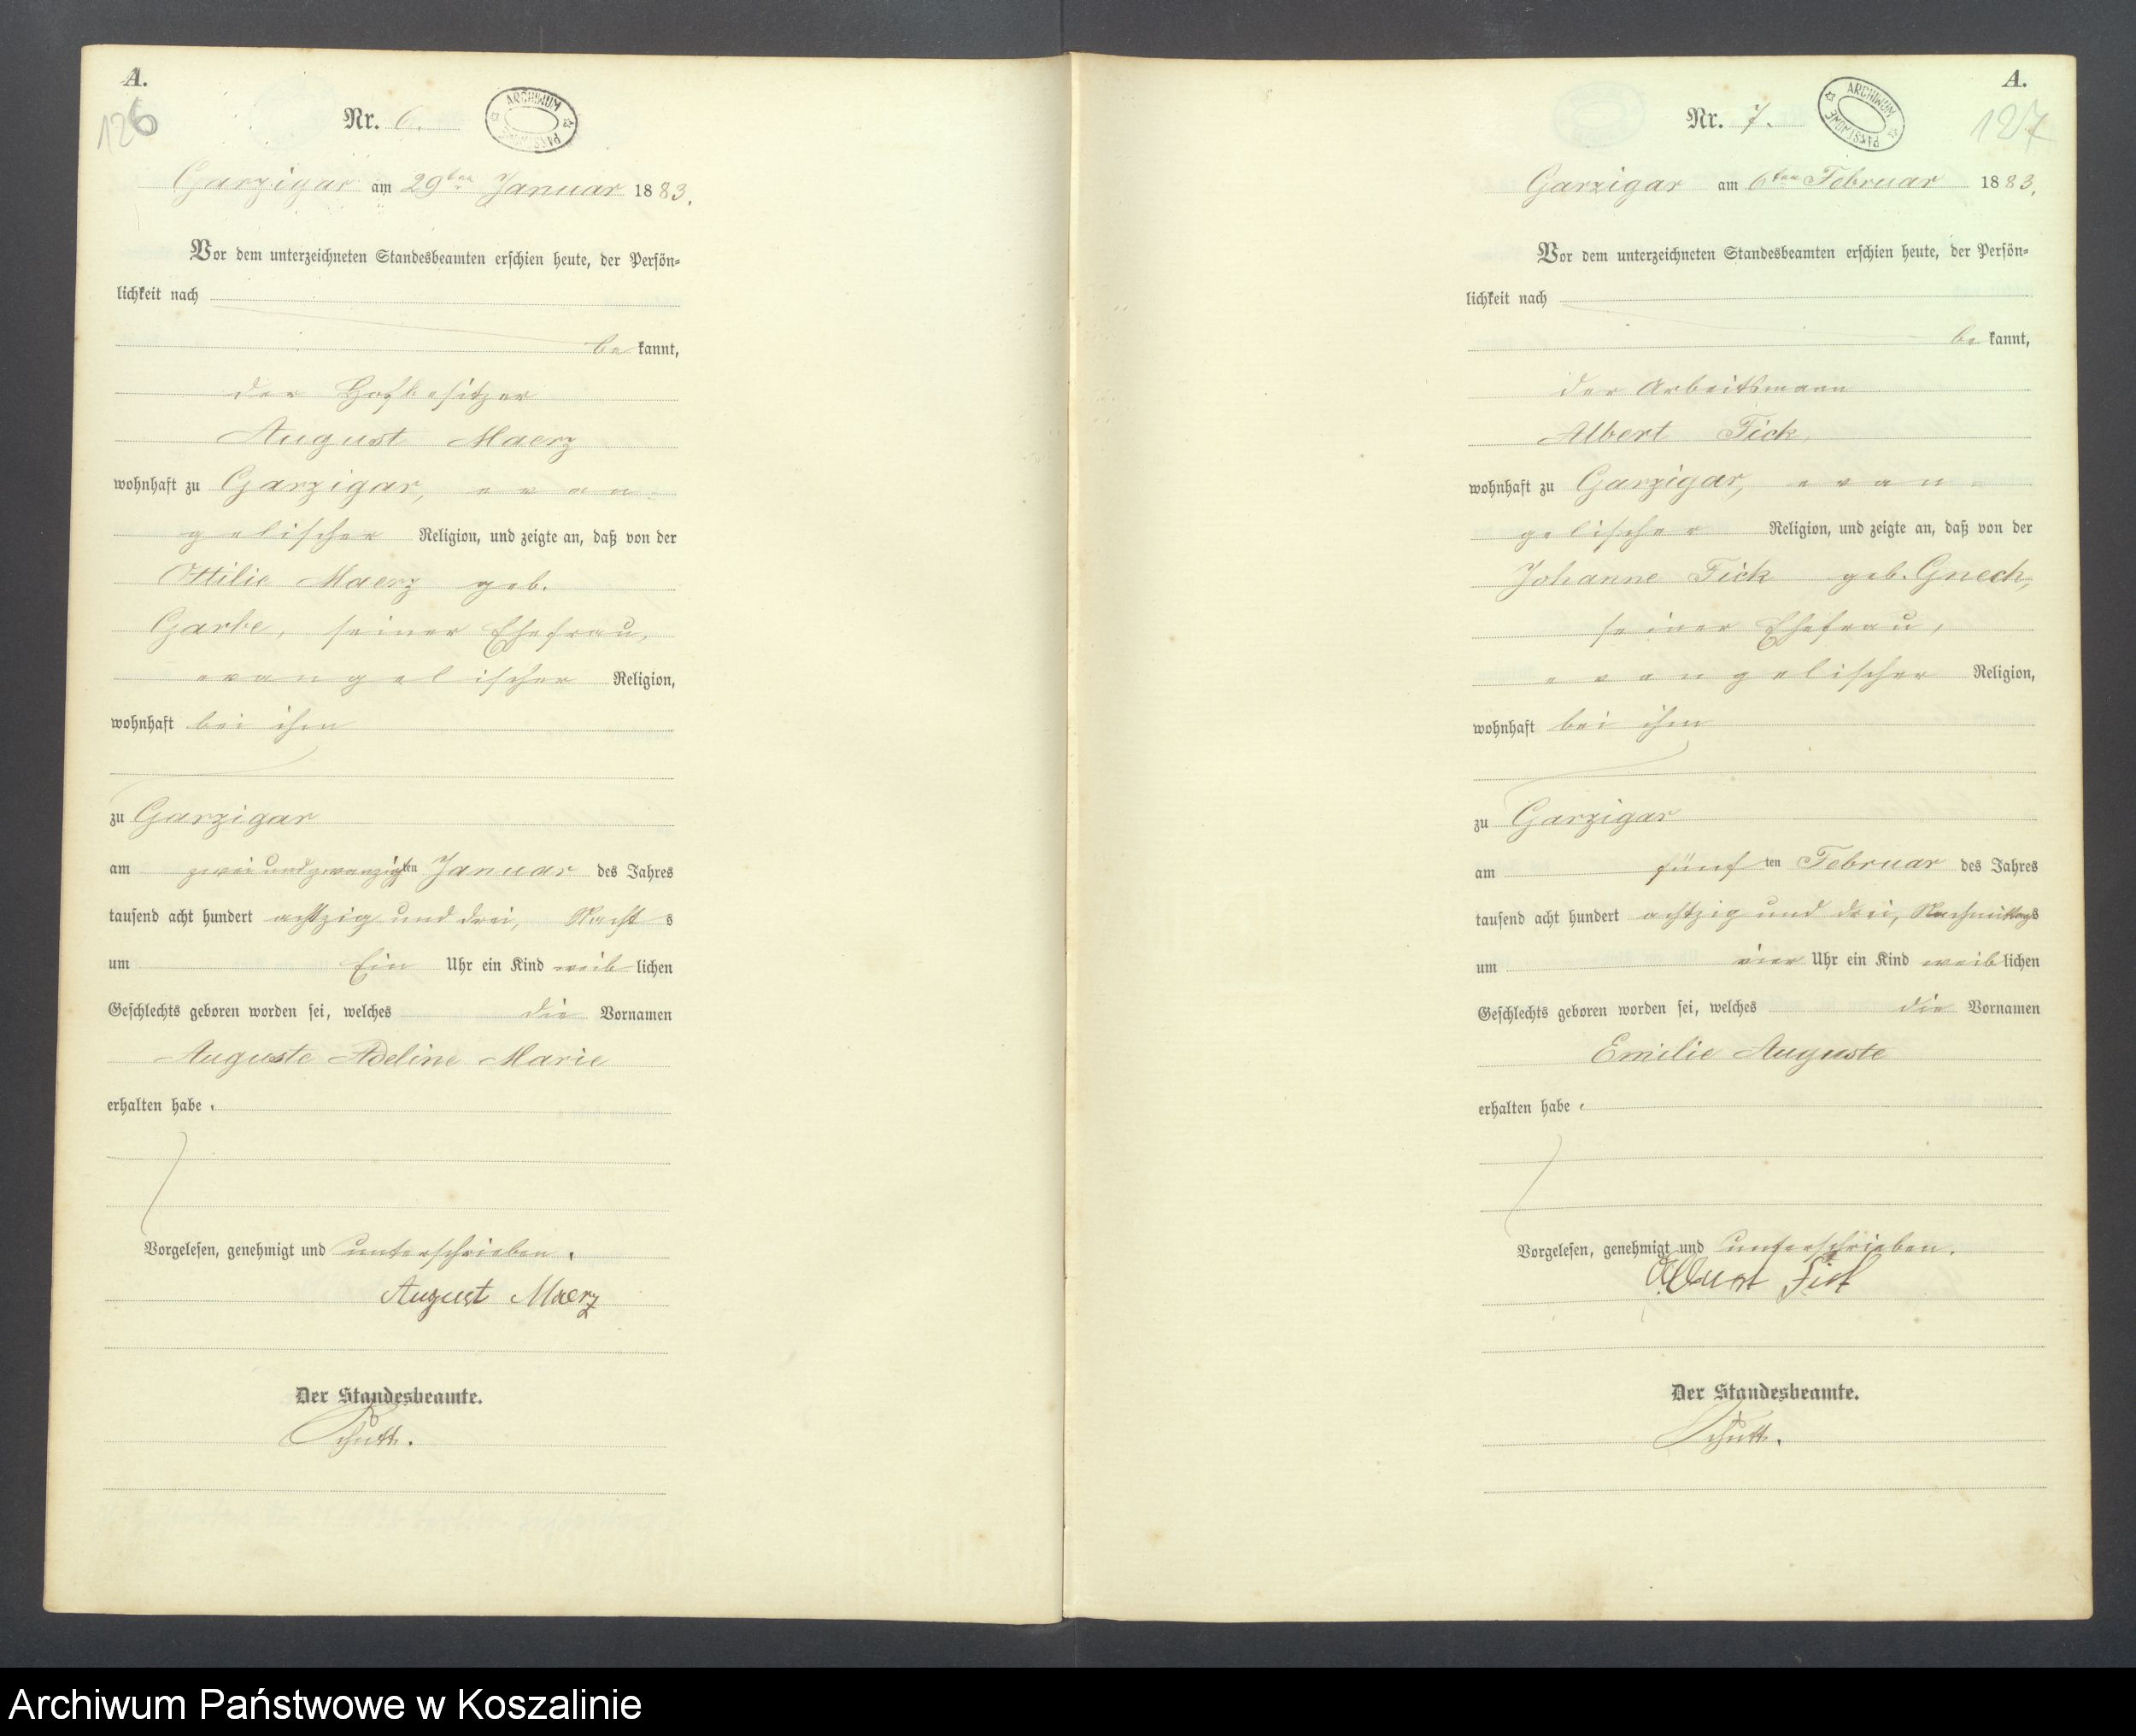 A.
126
Nr. 6.
ARCHIWUM PAŃSTWOWE
Garzigar am 29ten Januar 1883.
Vor dem unterzeichneten Standesbeamten erschien heute, der Persön-
lichkeit nach
be kannt,
der Hofbesitzer
August Maerz
wohnhaft zu Garzigar, evan-
gelischer Religion, und zeigte an, daß von der
Ottilie Maerz geb.
Garbe, seiner Ehefrau,
evangelischer Religion,
wohnhaft bei ihm
zu Garzigar
am zwei und zwanzigsten Januar des Jahres
tausend acht hundert achtzig und drei, Nachts
um Ein Uhr ein Kind weiblichen
Geschlechts geboren worden sei, welches die Vornamen
Auguste Adeline Marie
erhalten habe.
Vorgelesen, genehmigt und unterschrieben.
August Maerz
Der Standesbeamte.
Schütt.
A.
127
Nr. 7.
ARCHIWUM PAŃSTWOWE
Garzigar am 6ten Februar 1883.
Vor dem unterzeichneten Standesbeamten erschien heute, der Persön-
lichkeit nach
be kannt,
der Arbeitsmann
Albert Fick,
wohnhaft zu Garzigar, evan-
gelischer Religion, und zeigte an, daß von der
Johanne Fick geb. Gnech,
seiner Ehefrau,
evangelischer Religion,
wohnhaft bei ihm
zu Garzigar
am fünften Februar des Jahres
tausend acht hundert achtzig und drei, Nachmittags
um vier Uhr ein Kind weiblichen
Geschlechts geboren worden sei, welches die Vornamen
Emilie Auguste
erhalten habe.
Vorgelesen, genehmigt und unterschrieben.
Albert Fick
Der Standesbeamte.
Schütt.
Archiwum Państwowe w Koszalinie